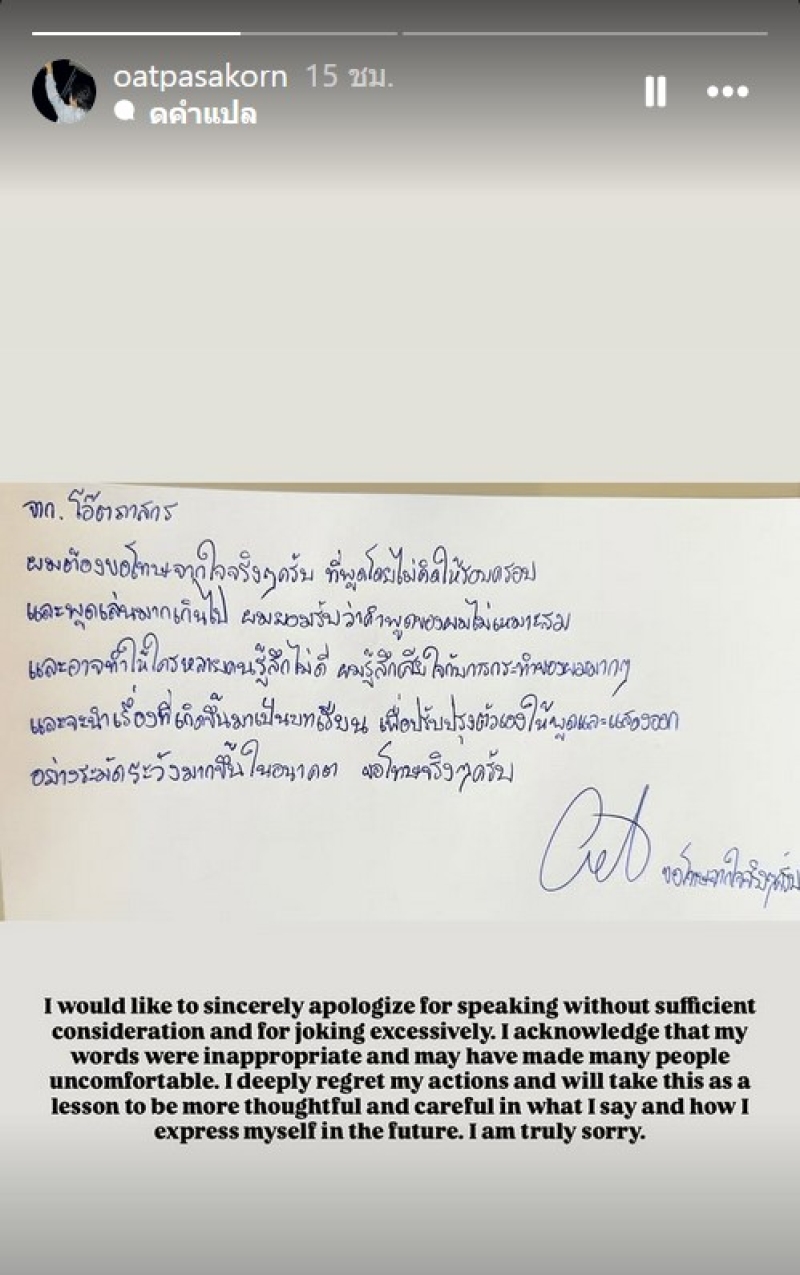 oatpasakorn 15 ชม.
ดูคำแปล
จาก. โอ๊ตภาสกร
ผมต้องขอโทษจากใจจริงๆครับ ที่พูดโดยไม่คิดให้รอบครอบ
และพูดเล่นมากเกินไป ผมยอมรับว่าคำพูดของผมไม่เหมาะสม
และอาจทำให้ใครหลายคนรู้สึกไม่ดี ผมรู้สึกเสียใจกับการกระทำของผมมากๆ
และจะนำเรื่องที่เกิดขึ้นมาเป็นบทเรียน เพื่อปรับปรุงตัวเองให้พูดและแสดงออก
อย่างระมัดระวังมากขึ้นในอนาคต ขอโทษจริงๆครับ
ขอโทษจากใจจริงๆครับ
I would like to sincerely apologize for speaking without sufficient
consideration and for joking excessively. I acknowledge that my
words were inappropriate and may have made many people
uncomfortable. I deeply regret my actions and will take this as a
lesson to be more thoughtful and careful in what I say and how I
express myself in the future. I am truly sorry.